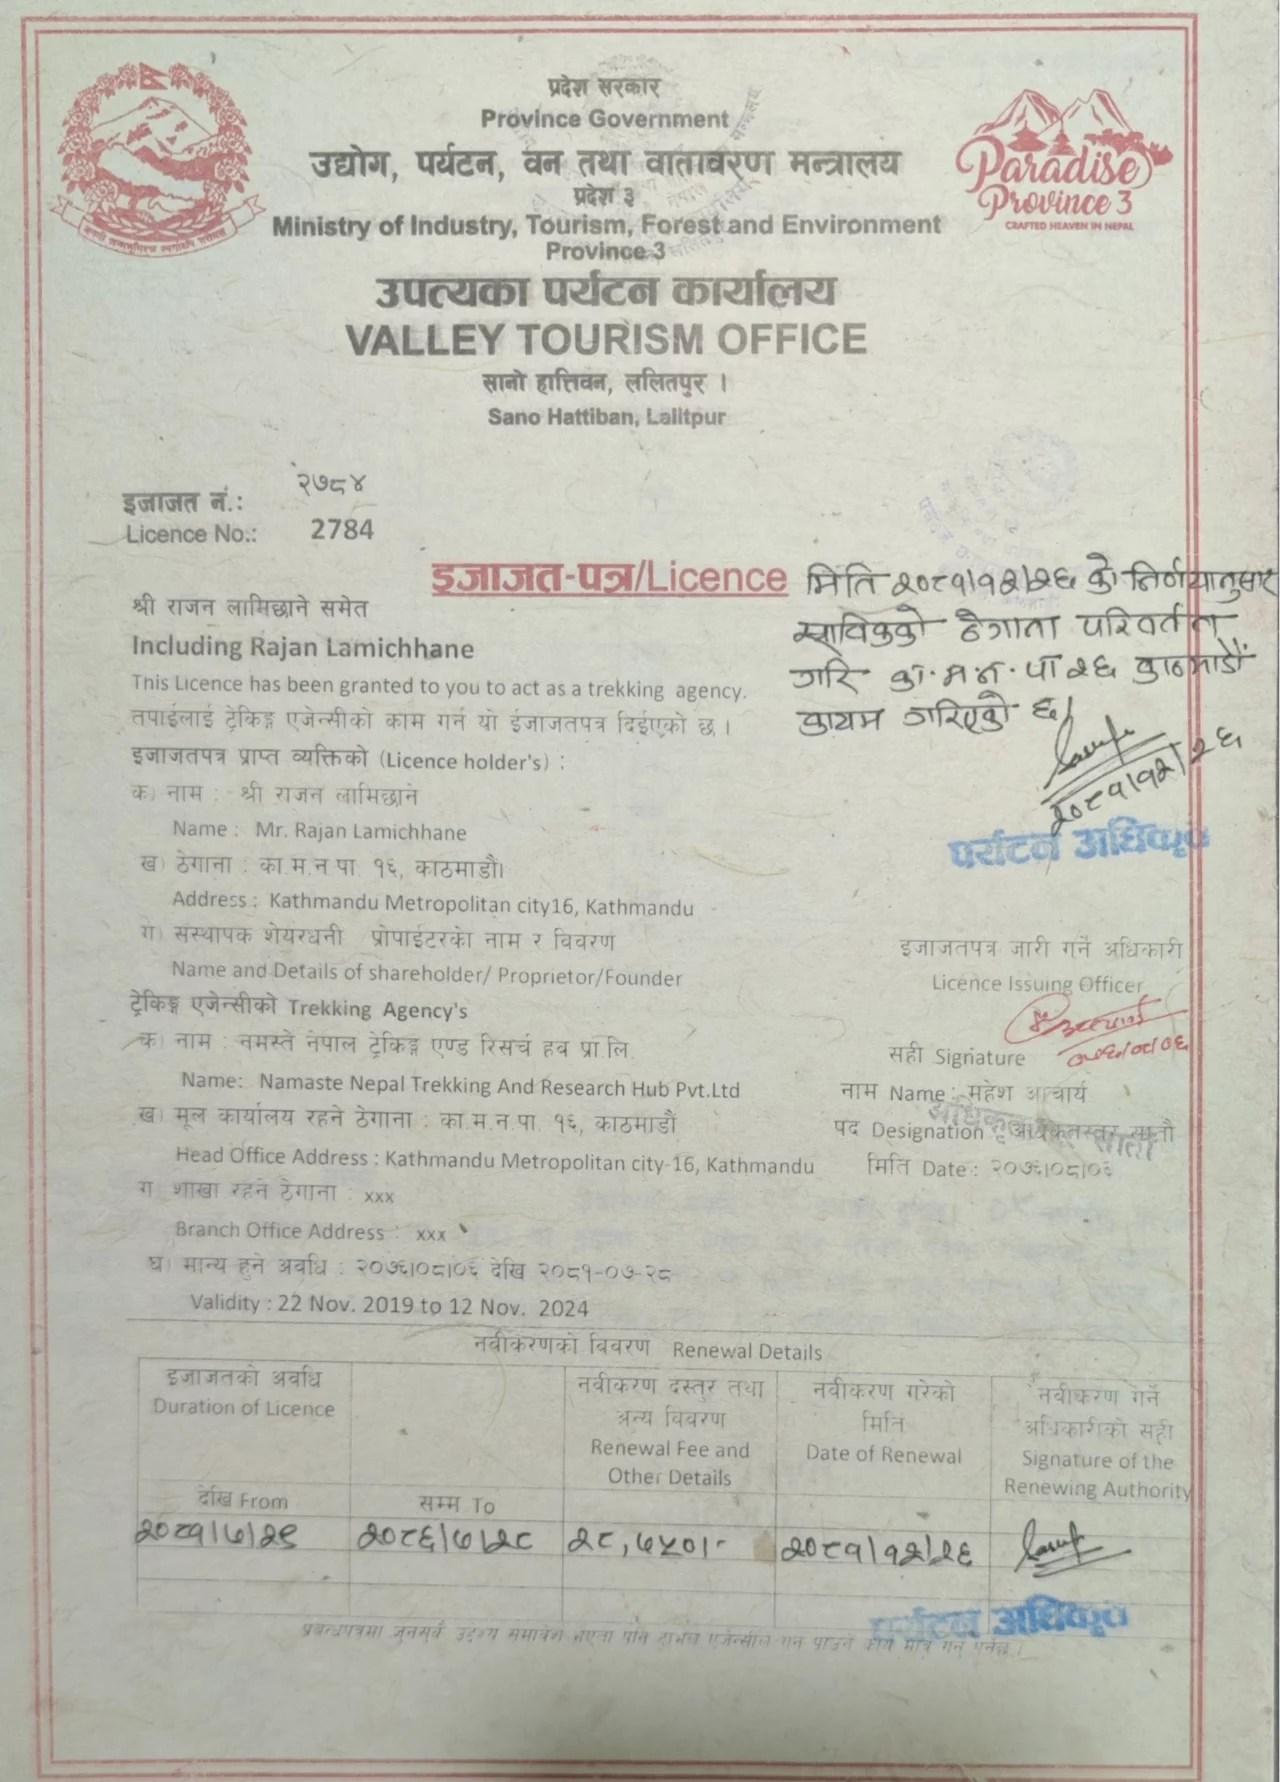 प्रदेश सरकार
Province Government
उद्योग, पर्यटन, वन तथा वातावरण मन्त्रालय
प्रदेश ३
Ministry of Industry, Tourism, Forest and Environment
Province 3
Paradise
Province 3
CRAFTED HEAVEN IN NEPAL
उपत्यका पर्यटन कार्यालय
VALLEY TOURISM OFFICE
सानो हात्तिवन, ललितपुर ।
Sano Hattiban, Lalitpur
इजाजत नं.: २७८४
Licence No.: 2784
इजाजत-पत्र/Licence
मिति २०८१/१२/२६ को निर्णयानुसार
साविकको ठेगाना परिवर्तन
गरि का.म.न.पा २६ काठमाडौं
कायम गरिएको छ।
२०८१/१२/२६
पर्यटन अधिकृत
श्री राजन लामिछाने समेत
Including Rajan Lamichhane
This Licence has been granted to you to act as a trekking agency.
तपाईलाई ट्रेकिङ्ग एजेन्सीको काम गर्न यो ईजाजतपत्र दिईएको छ ।
इजाजतपत्र प्राप्त व्यक्तिको (Licence holder's) :
क) नाम : श्री राजन लामिछाने
Name : Mr. Rajan Lamichhane
ख) ठेगाना : का.म.न.पा. १६, काठमाडौं।
Address : Kathmandu Metropolitan city16, Kathmandu
ग) संस्थापक शेयरधनी प्रोपाईटरको नाम र विवरण
Name and Details of shareholder/ Proprietor/Founder
ट्रेकिङ्ग एजेन्सीको Trekking Agency's
क) नाम : नमस्ते नेपाल ट्रेकिङ्ग एण्ड रिसर्च हव प्रा.लि.
Name: Namaste Nepal Trekking And Research Hub Pvt.Ltd
ख) मूल कार्यालय रहने ठेगाना : का.म.न.पा. १६, काठमाडौं
Head Office Address : Kathmandu Metropolitan city-16, Kathmandu
ग) शाखा रहने ठेगाना : xxx
Branch Office Address : xxx
घ) मान्य हुने अवधि : २०७६।०८।०६ देखि २०८१-०७-२८
Validity : 22 Nov. 2019 to 12 Nov. 2024
इजाजतपत्र जारी गर्ने अधिकारी
Licence Issuing Officer
सही Signature
नाम Name : महेश आचार्य
पद Designation : अधिकृतस्तर सातौ
मिति Date : २०७६।०८।०६
नवीकरणको विवरण Renewal Details
इजाजतको अवधि
Duration of Licence
देखि From
सम्म To
नवीकरण दस्तुर तथा
अन्य विवरण
Renewal Fee and
Other Details
नवीकरण गरेको
मिति
Date of Renewal
नवीकरण गर्ने
अधिकारीको सही
Signature of the
Renewing Authority
२०८१/७/२९ २०८६/७/२८ २८,७५०/- २०८१/१२/२६
पर्यटन अधिकृत